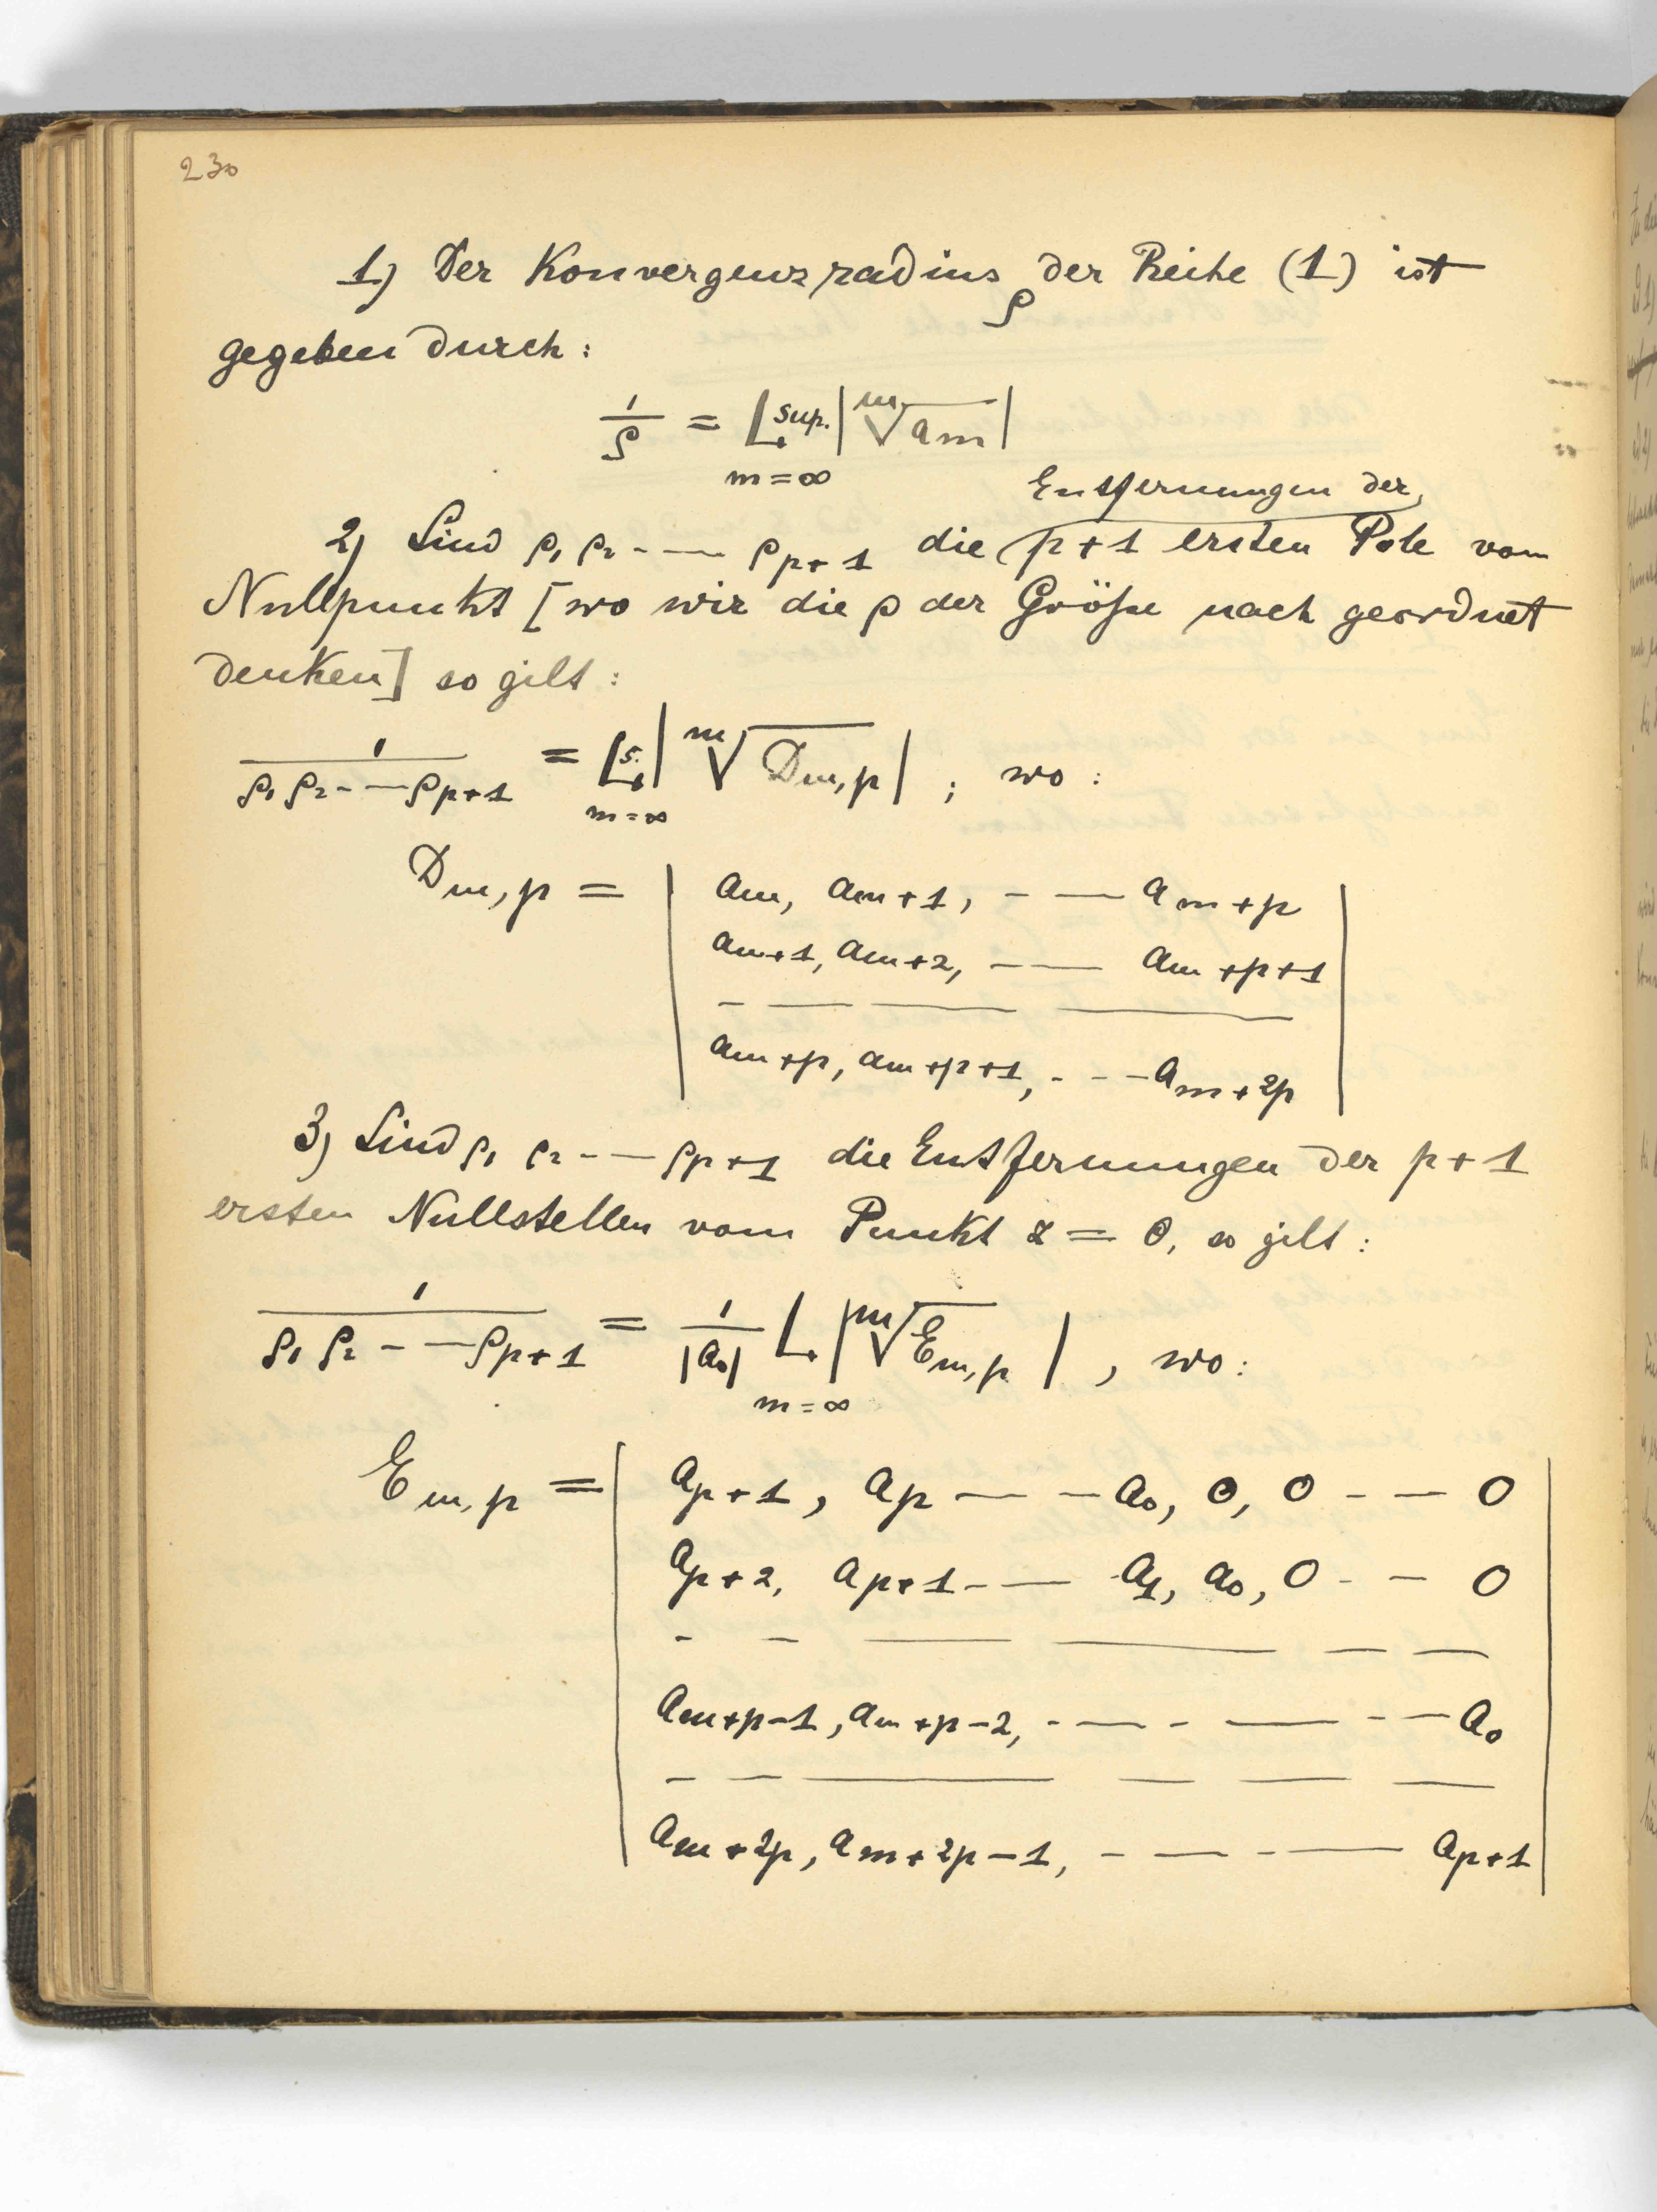 230
1) Der Konvergenzradius ρ der Reihe (1) ist
gegeben durch:
1/ρ = L sup. |ᵐ√aₘ|
m = ∞
Entfernungen der
2) Sind ρ₁ ρ₂ - — ρₚ₊₁ die p+1 ersten Pole vom
Nullpunkt [wo wir die ρ der Größe nach geordnet
denken] so gilt:
1/(ρ₁ ρ₂ - — ρₚ₊₁) = L s. |ᵐ√Dₘ,ₚ| ; wo:
m = ∞
Dₘ,ₚ = | aₘ, aₘ₊₁, - — aₘ₊ₚ |
| aₘ₊₁, aₘ₊₂, — — aₘ₊ₚ₊₁ |
| - — — — |
| aₘ₊ₚ, aₘ₊ₚ₊₁, - - - aₘ₊₂ₚ |
3) Sind ρ₁ ρ₂ - — ρₚ₊₁ die Entfernungen der p+1
ersten Nullstellen vom Punkt z = 0, so gilt:
1/(ρ₁ ρ₂ - — ρₚ₊₁) = 1/|a₀| L |ᵐ√Eₘ,ₚ| , wo:
m = ∞
Eₘ,ₚ = | aₚ₊₁, aₚ — - a₀, 0, 0 - — 0 |
| aₚ₊₂, aₚ₊₁ - — a₁, a₀, 0 - — 0 |
| - - — — — — |
| aₘ₊ₚ₋₁, aₘ₊ₚ₋₂, - — - — - — a₀ |
| - — — — — — |
| aₘ₊₂ₚ, aₘ₊₂ₚ₋₁, - — - — aₚ₊₁ |